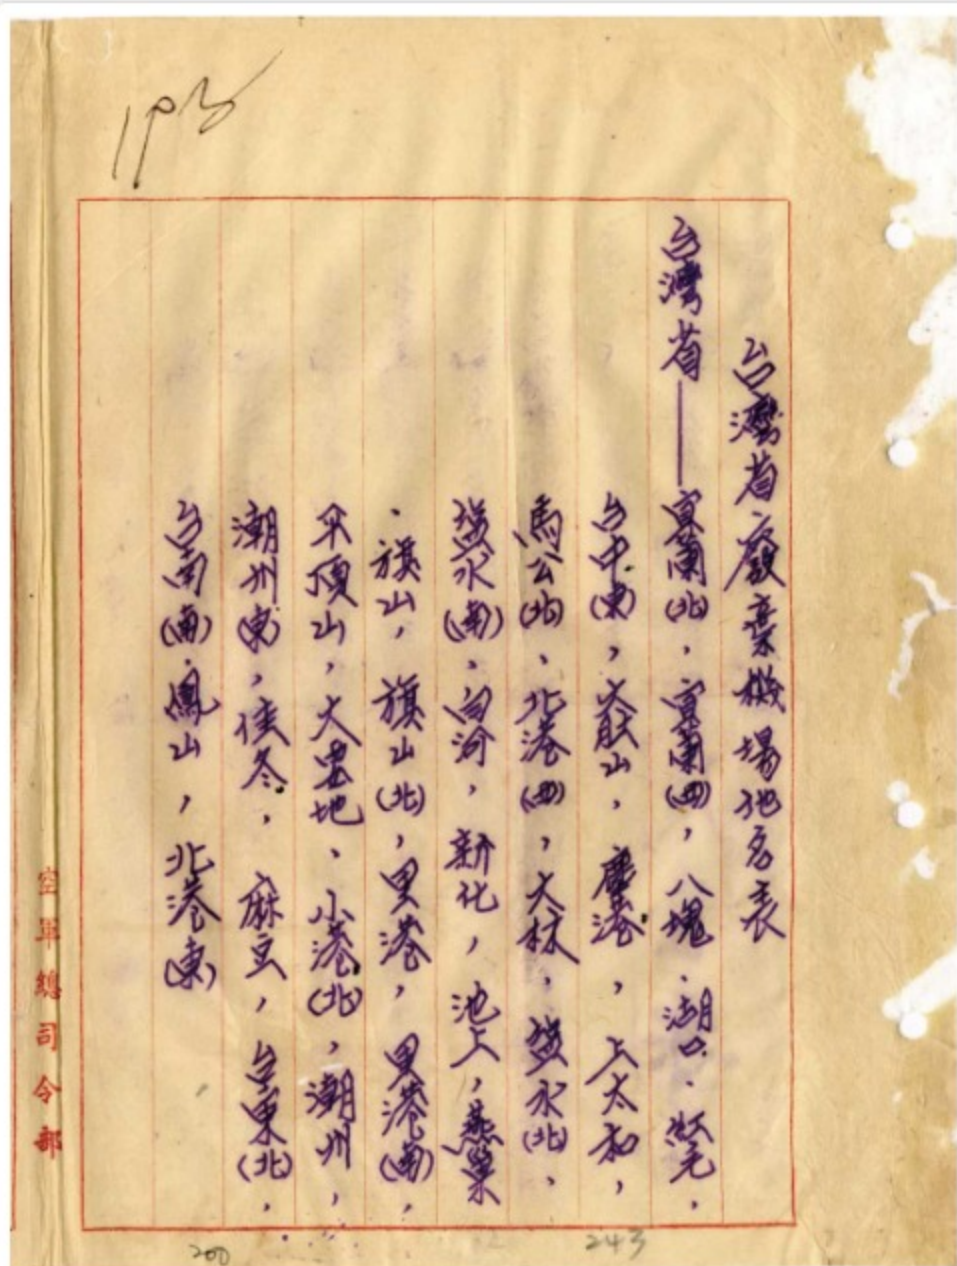 台灣省廢棄機場地名表
台灣省——宜蘭(北)、宜蘭(西)，八塊、湖口、紅毛，
台中(東)，大肚山，鹿港，上太和，
馬公(北)、北港(西)，大林，鹽水(北)、
鹽水(南)、白河，新化，池上，燕巢
、旗山，旗山(北)，里港，里港(南)，
平頂山，大崗地、小港(北)，潮州，
潮州(東)，佳冬，麻豆，台東(北)，
台南(南)、鳳山，北港(東)
空軍總司令部
200
243